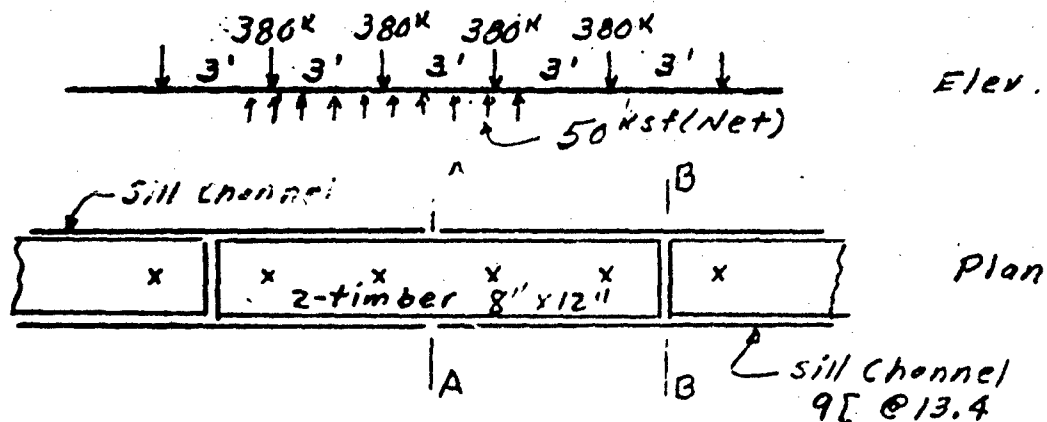 380ᴷ 380ᴷ 380ᴷ 380ᴷ
3' 3' 3' 3' 3'
Elev.
50 ksf(Net)
Sill Channel
B
Plan
2-timber 8" x 12"
A
B
Sill Channel
9[ @ 13.4